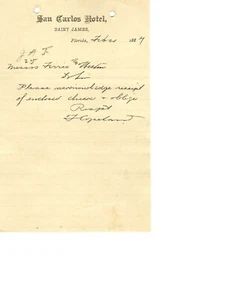 San Carlos Hotel,
SAINT JAMES,
Florida, Feb 21 1887
J. A. F.
25
Messrs Ferris &
Please acknowledge receipt
of enclosed check & oblige
Respct